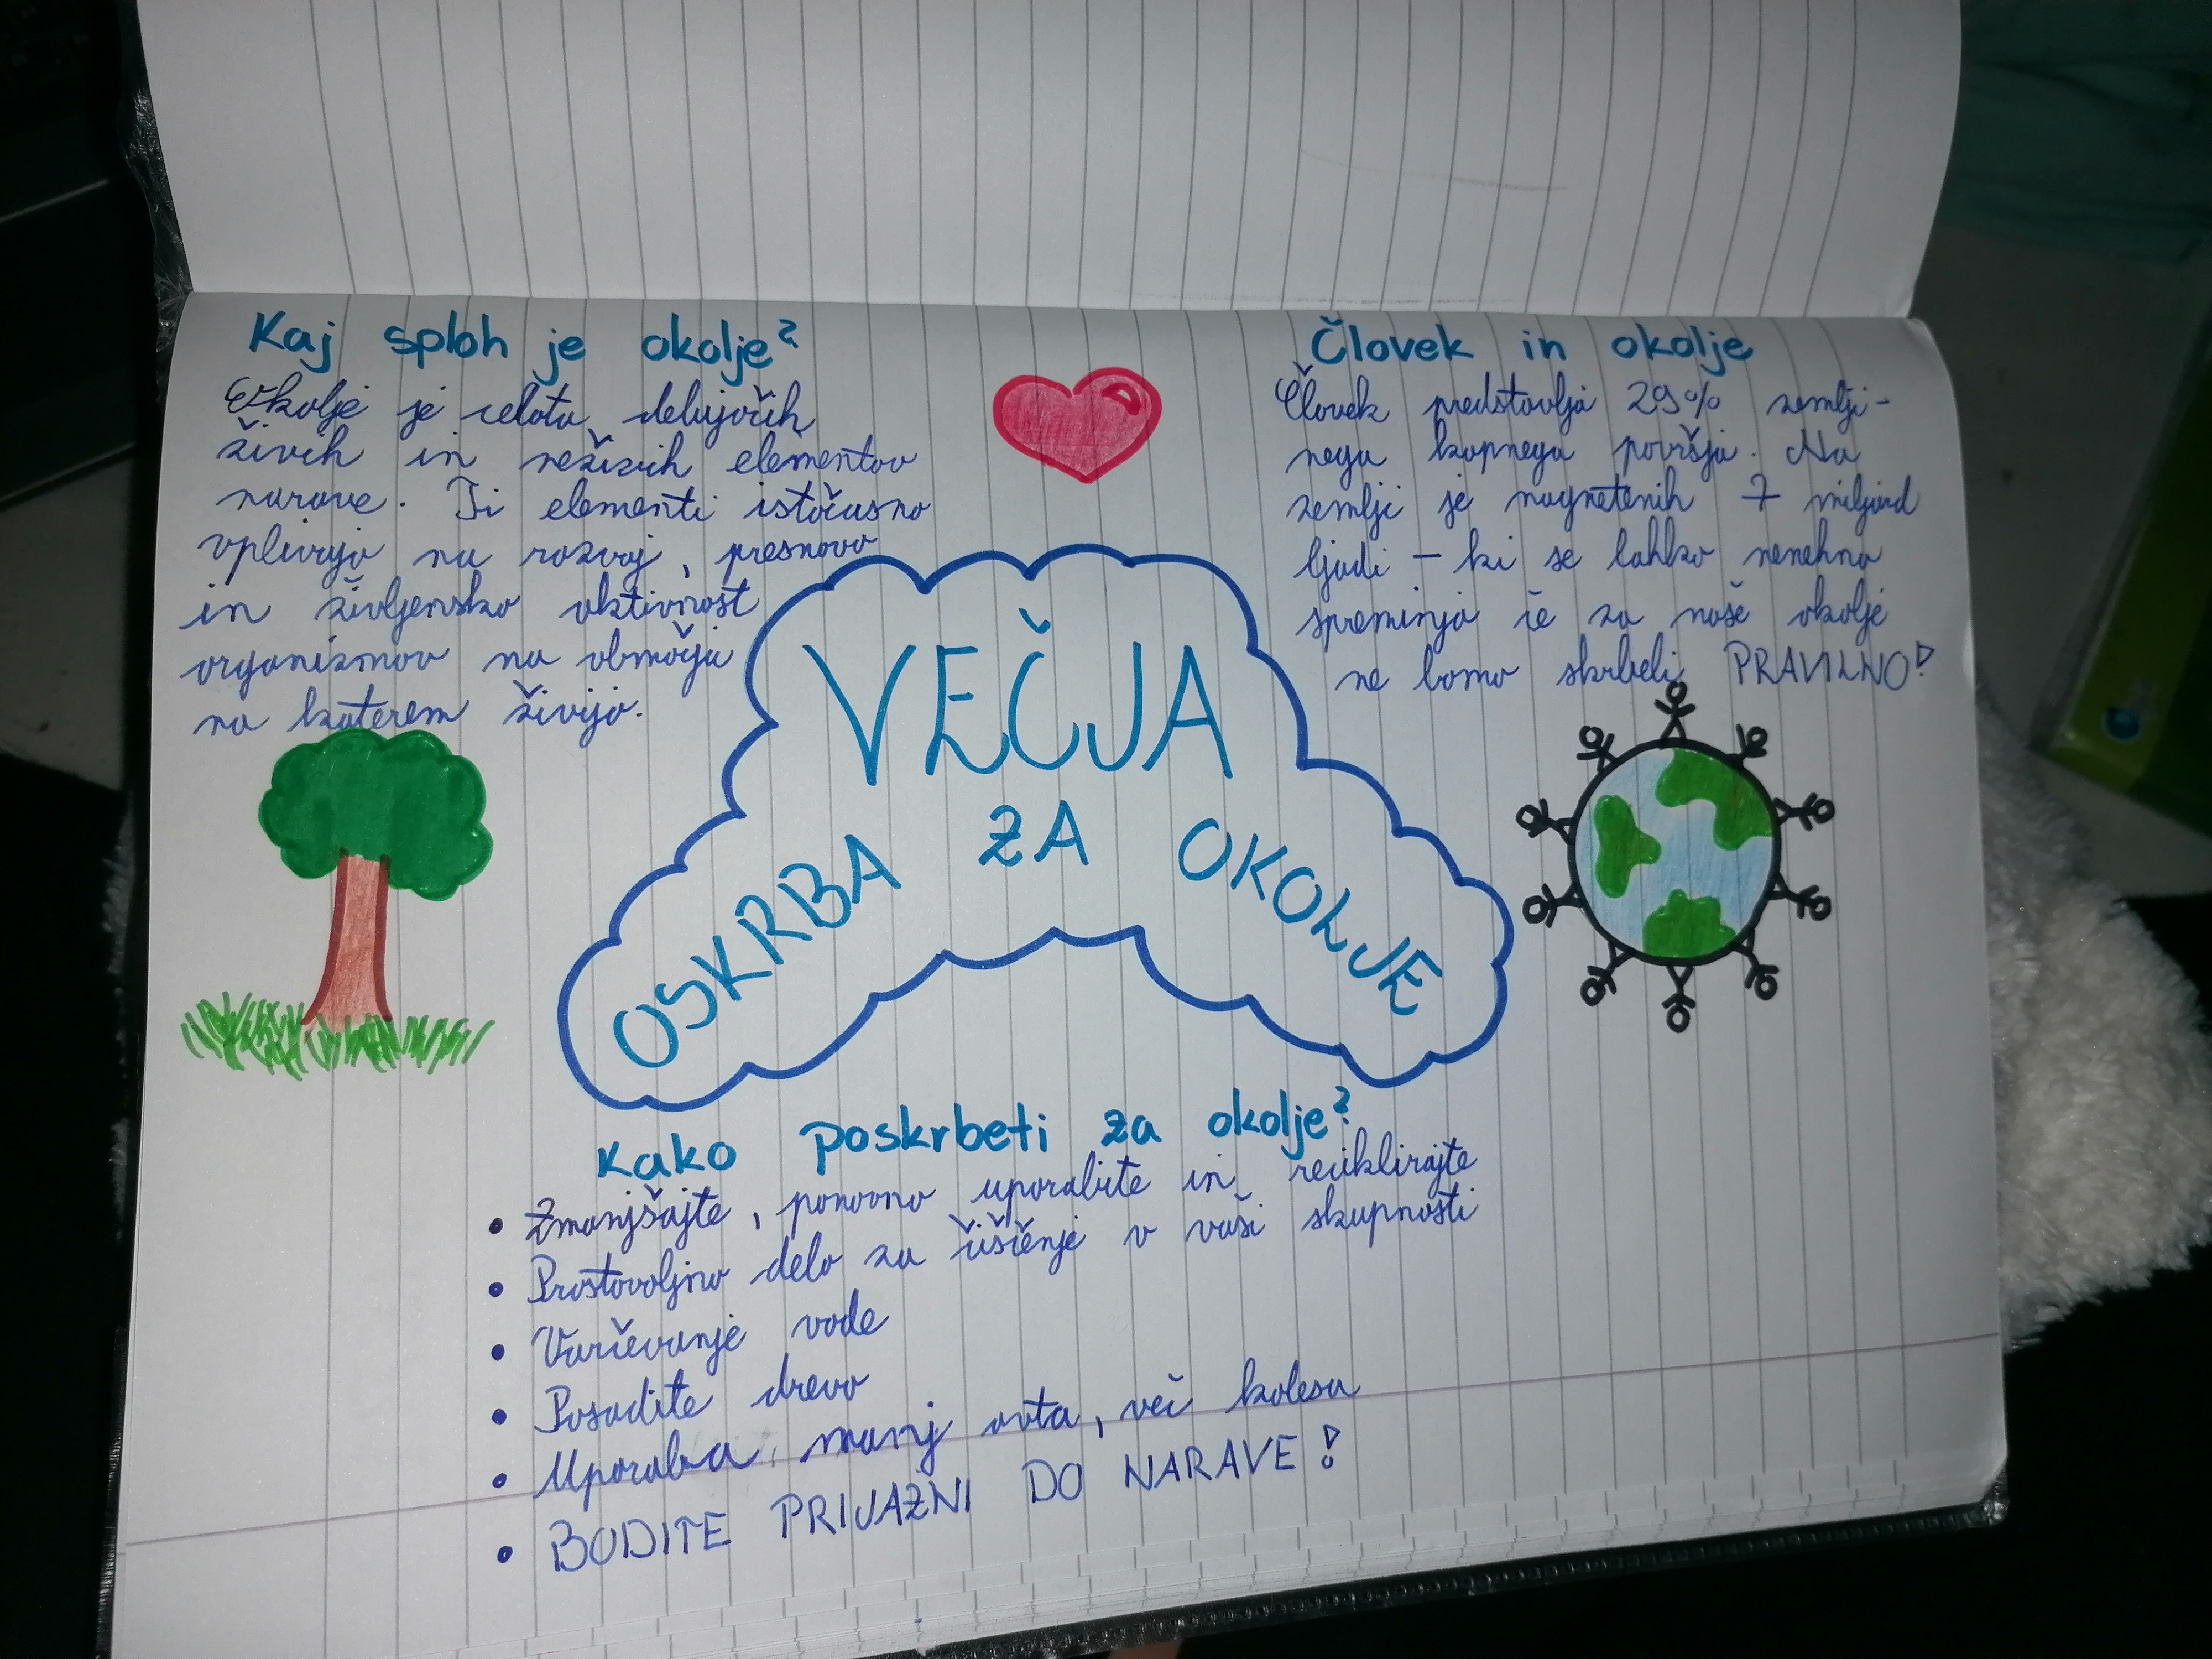 Kaj sploh je okolje?
Okolje je celota delujočih
živih in neživih elementov
narave. Ti elementi istočasno
vplivajo na razvoj, presnovo
in življensko aktivnost
organizmov na območju
na katerem živijo.
Človek in okolje
Človek predstavlja 29% zemlji-
nega kopnega površja. Na
zemlji je nagnetenih 7 miljard
ljudi - ki se lahko nenehno
spreminja če za naše okolje
ne bomo skrbeli PRAVILNO!
VEČJA
OSKRBA ZA OKOLJE
Kako poskrbeti za okolje?
• Zmanjšajte, ponovno uporabite in reciklirajte
• Prostovoljno delo za čiščenje v vaši skupnosti
• Varčevanje vode
• Posadite drevo
• Uporaba manj avta, več kolesa
• BODITE PRIJAZNI DO NARAVE!